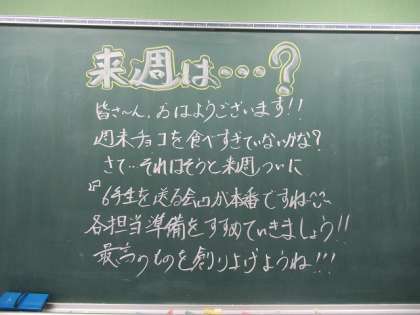 来週は…?
皆さ〜ん、おはようございます!!
週末チョコを食べすぎていないかな?
さて…それはそうと来週ついに
『6年生を送る会』が本番ですね〜
各担当準備をすすめていきましょう!!
最高のものを創り上げようね!!!